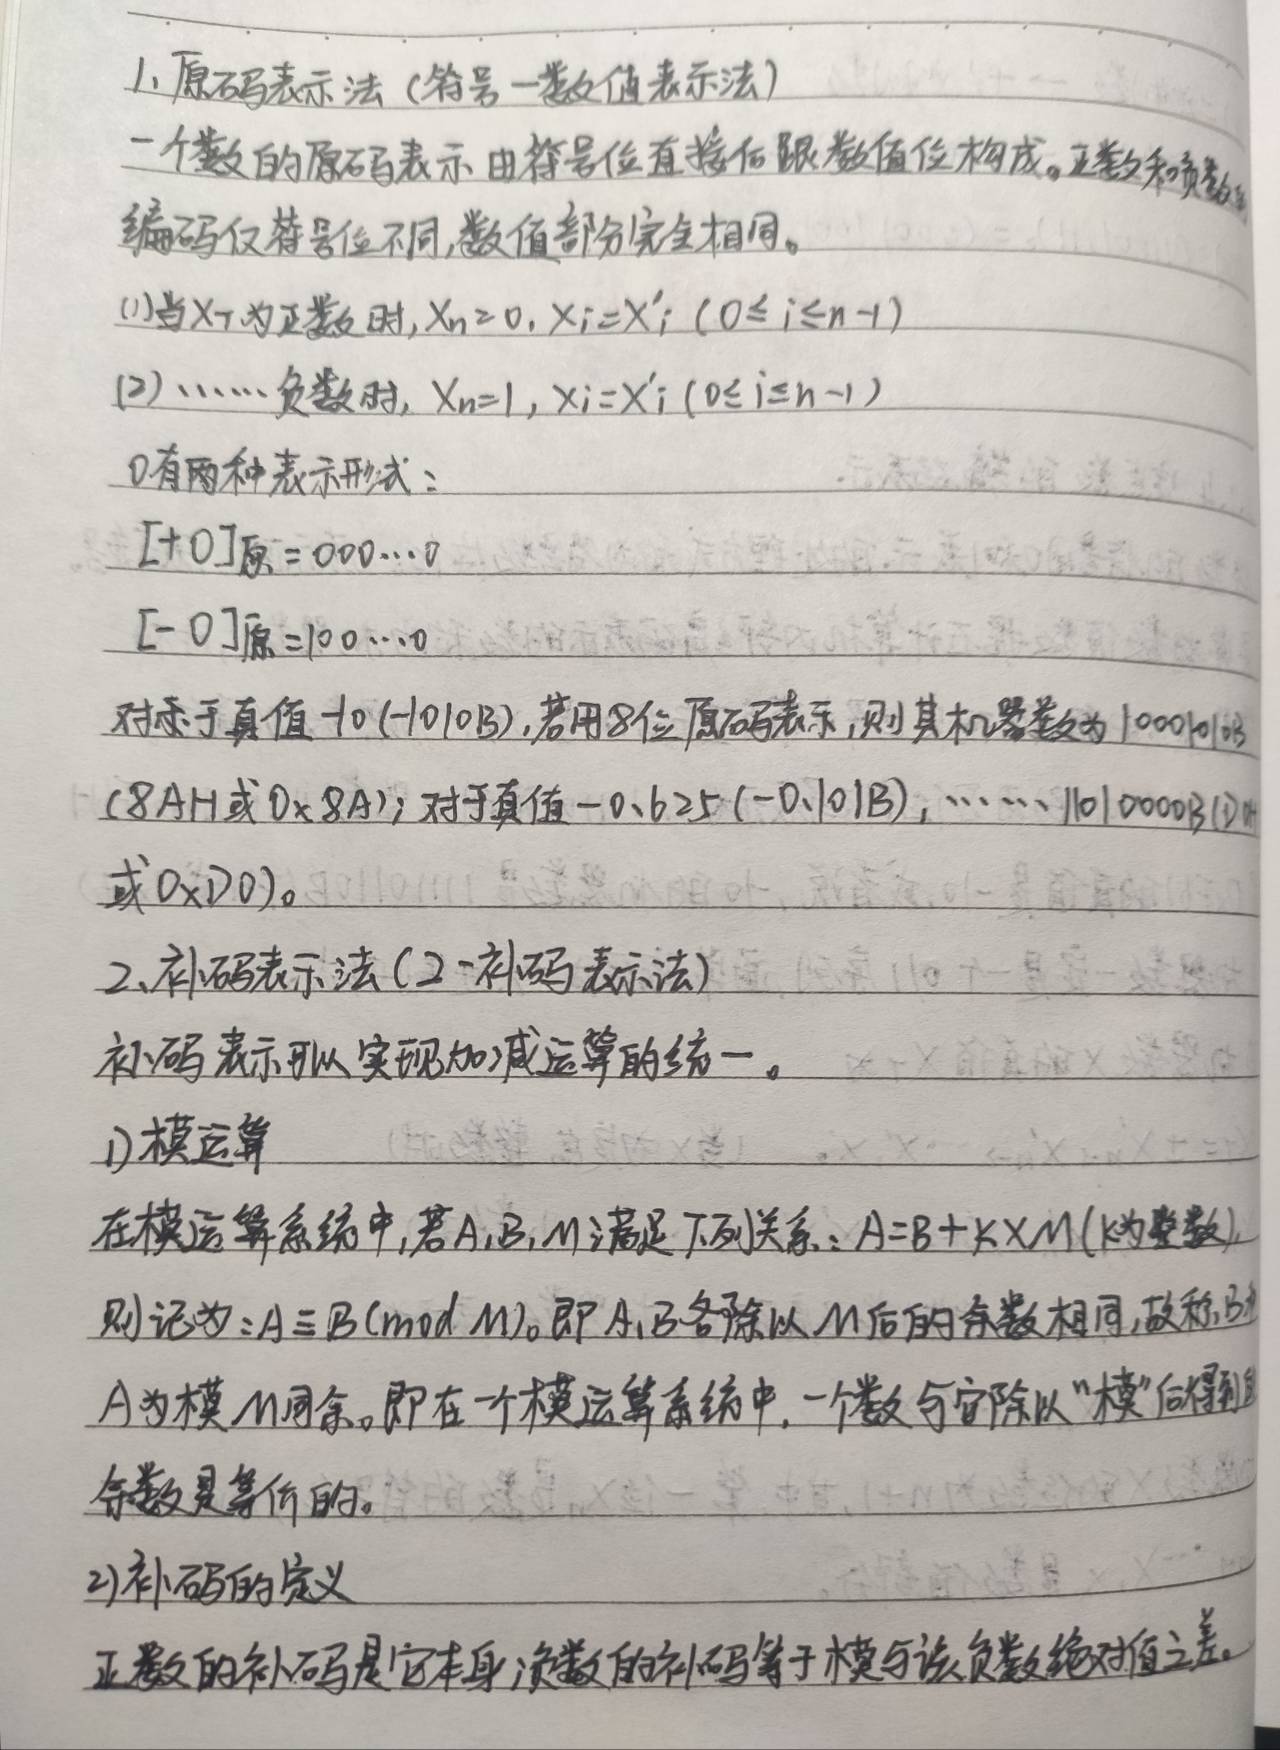 1、原码表示法（符号一数值表示法）
一个数的原码表示由符号位直接后跟数值位构成。正数和负数的
编码仅符号位不同,数值部分完全相同。
(1)当XT为正数时, Xn=0, Xi=X'i (0≤i≤n-1)
(2)……负数时, Xn=1, Xi=X'i (0≤i≤n-1)
0有两种表示形式：
[+0]原=000…0
[-0]原=100…0
对于真值-10(-1010B),若用8位原码表示,则其机器数为10001010B
(8AH或0x8A); 对于真值-0.625(-0.101B), ……11010000B(D0H
或0xD0)。
2、补码表示法(2-补码表示法)
补码表示可以实现加减运算的统一。
1)模运算
在模运算系统中,若A,B,M满足下列关系：A=B+K×M(K为整数),
则记为：A≡B(mod M)。即A,B各除以M后的余数相同,故称,B和
A为模M同余。即在一个模运算系统中,一个数与它除以"模"后得到的
余数是等价的。
2)补码的定义
正数的补码是它本身;负数的补码等于模与该负数绝对值之差。